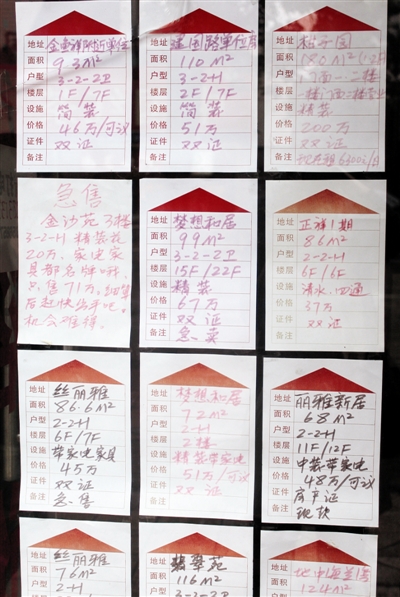 地址 金
面积 93m²
户型 3-2-2P
楼层 1F/7F
设施 简装
价格 46万/可议
证件 双证
备注
地址 建国路单位房
面积 110m²
户型 3-2-H
楼层 2F/7F
设施 简装
价格 51万
证件 双证
备注
地址 桔子园
面积
户型 门面一二楼
楼层
设施 精装
价格 200万
证件 双证
备注
急售
金沙苑3楼
3-2-H 精装花
20万、家电家
具都名牌呀、
只售71万、
后赶快
机会难得。
地址 梦想和居
面积 99m²
户型 3-2-2P
楼层 15F/22F
设施 精装
价格 67万
证件 双证
备注 急卖
地址 正祥1期
面积 86m²
户型 2-2-H
楼层 6F/6F
设施 清水、四通
价格 37万
证件 双证
备注
地址 丝丽雅
面积 86.6m²
户型 2-2-H
楼层 6F/7F
设施 带家电家具
价格 45万
证件 双证
备注 急售
地址 梦想和居
面积 72m²
户型 2-H
楼层 2楼
设施 精装带家电
价格 51万/可议
证件 双证
备注
地址 丽雅新居
面积 68m²
户型 2-2-H
楼层 11F/12F
设施 中装带家电
价格 48万/可议
证件 房产证
备注 现款
地址 丝丽雅
面积 76m²
户型 2-H
地址 翡翠苑
面积 116m²
户型 3-2-2P
地址 地中海蓝湾
面积 124m²
户型